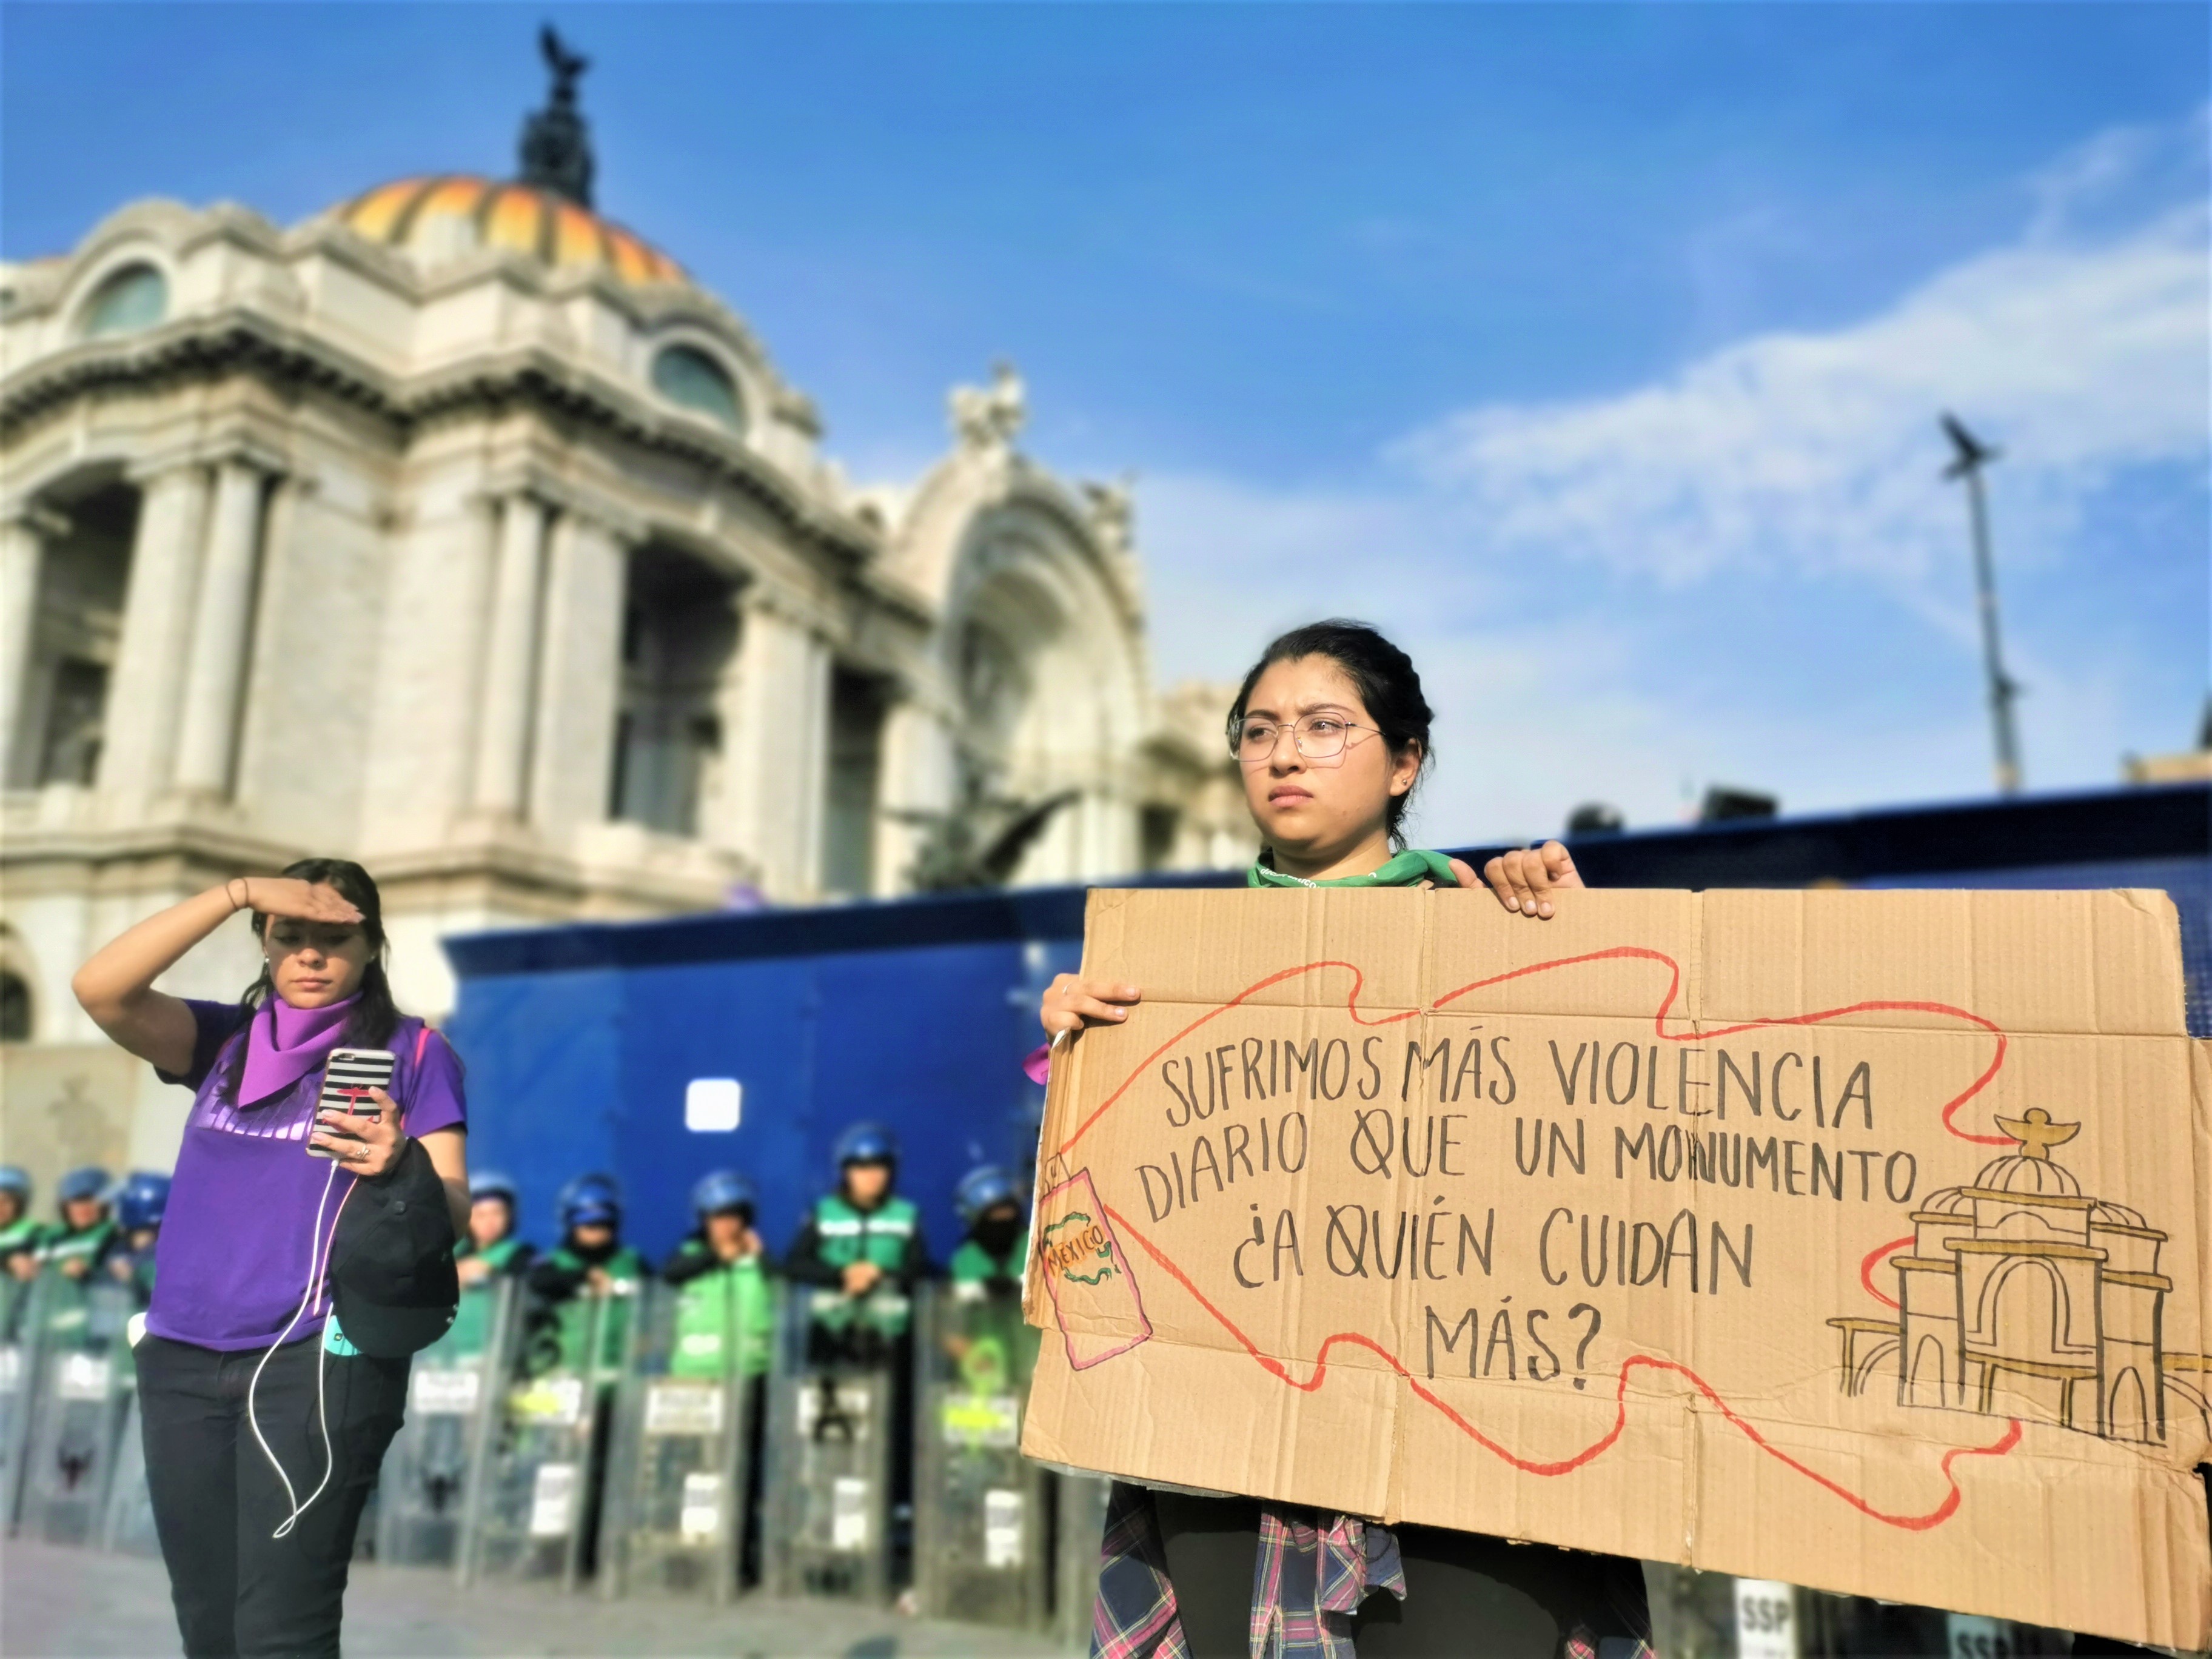 SUFRIMOS MÁS VIOLENCIA
DIARIO QUE UN MONUMENTO
¿A QUIÉN CUIDAN
MÁS?
MÉXICO
SSP
SSP